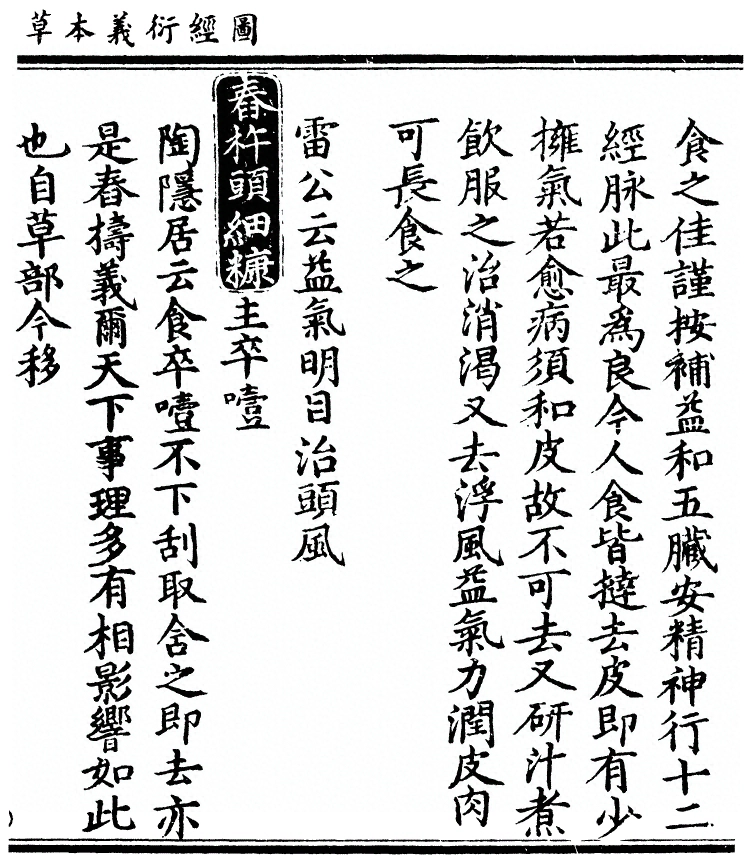 圖經衍義本草
食之佳謹按補益和五臟安精神行十二
經脉此最爲良今人食皆撻去皮即有少
擁氣若愈病須和皮故不可去又研汁煮
飲服之治消渴又去浮風益氣力潤皮肉
可長食之
雷公云益氣明目治頭風
舂杵頭細糠主卒噎
陶隱居云食卒噎不下刮取含之即去亦
是舂擣義爾天下事理多有相影響如此
也自草部今移